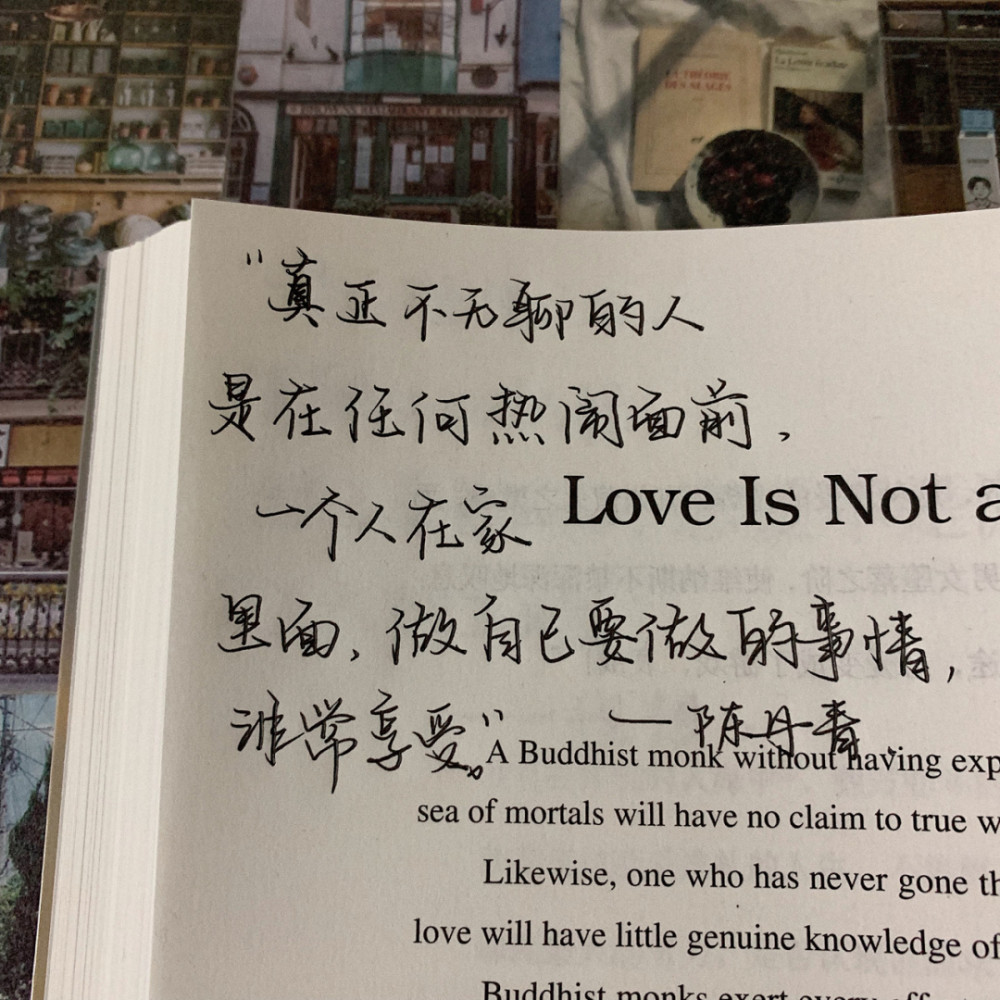 LA THÉORIE
DES NUAGES
“真正不无聊的人
是在任何热闹面前，
一个人在家
Love Is Not a
里面，做自己要做的事情，
非常享受。”——陈丹青
A Buddhist monk without having exp
sea of mortals will have no claim to true w
Likewise, one who has never gone th
love will have little genuine knowledge of
Buddhist monks exert every